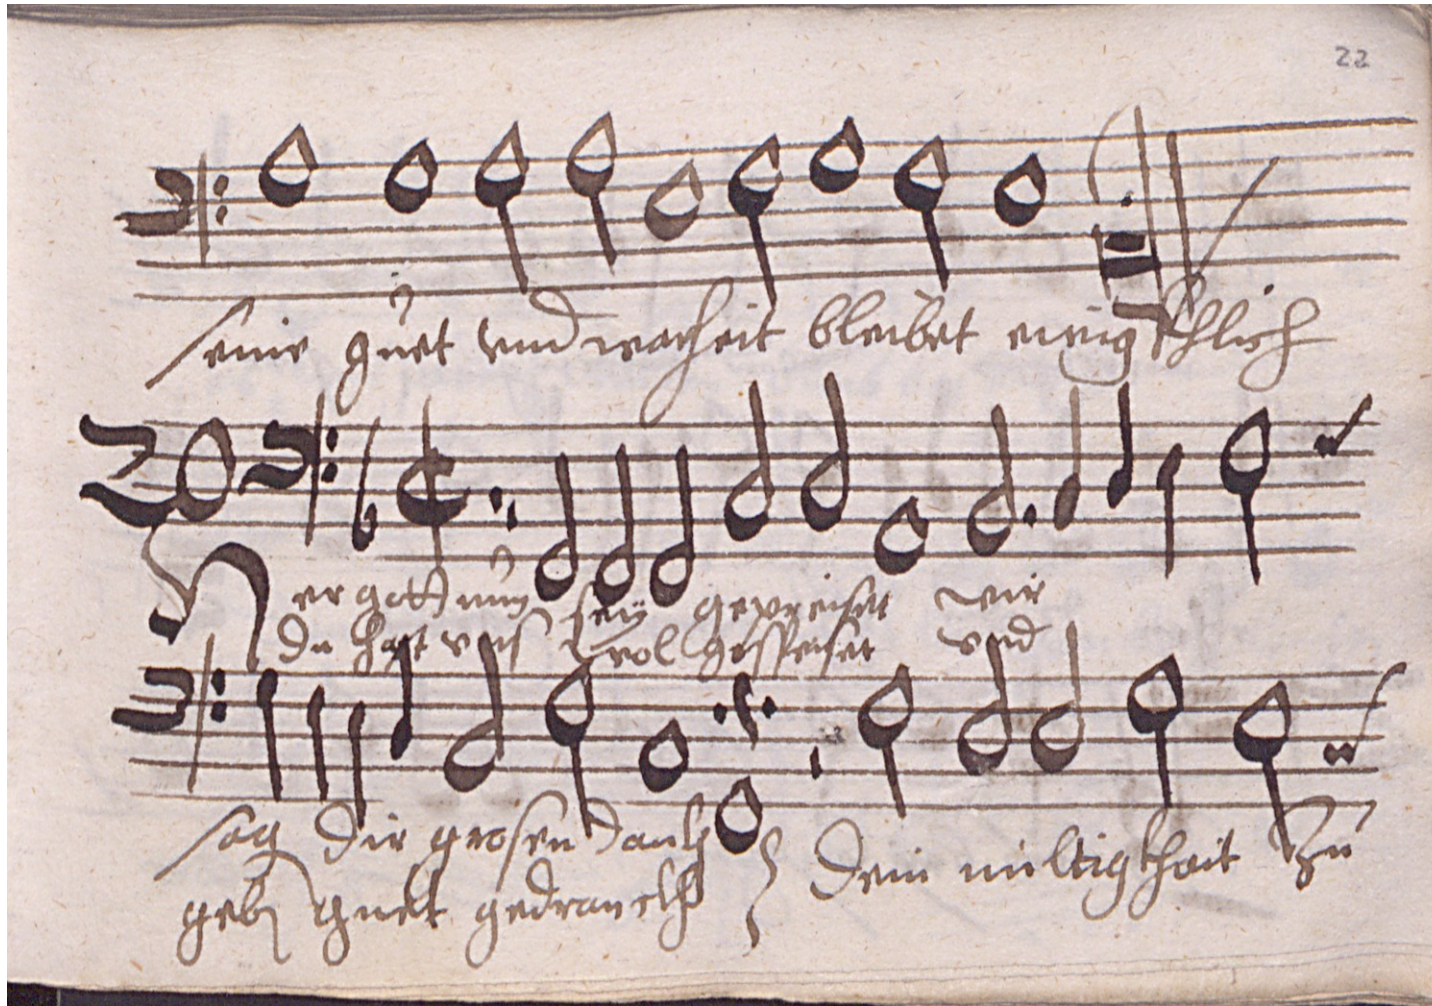 22
seine guet vnd warheit bleibet ewigkhlich
Herr gott nun sey gepreiset wir
Du hast vns wol gespeiset vnd
sag dir grosen dankh Dein miltigkheit zu
geben guet gedranckh